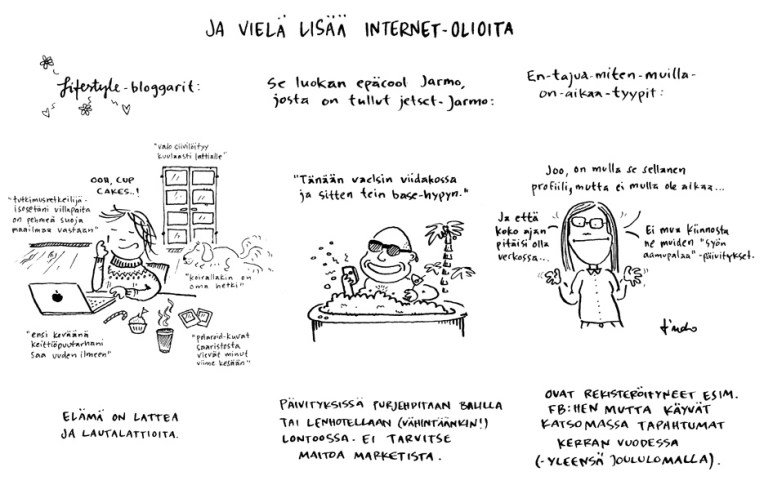 JA VIELÄ LISÄÄ INTERNET-OLIOITA
Lifestyle-bloggarit:
"valo siivilöityy
kuulaasti lattialle"
OOH, CUP
CAKES..!
"tutkimusretkeilijä-
isosetäni villapaita
on pehmeä suoja
maailmaa vastaan"
"koirallakin on
oma hetki"
"ensi keväänä
keittiöpuutarhani
saa uuden ilmeen"
"polaroid-kuvat
saaristosta
vievät minut
viime kesään"
ELÄMÄ ON LATTEA
JA LAUTALATTIOITA.
Se luokan epäcool Jarmo,
josta on tullut jetset-Jarmo:
"Tänään vaelsin viidakossa
ja sitten tein base-hypyn."
PÄIVITYKSISSÄ PURJEHDITAAN BALILLA
TAI LENHOTELLAAN (VÄHINTÄÄNKIN!)
LONTOOSSA. EI TARVITSE
MAITOA MARKETISTA.
En-tajua-miten-muilla-
on-aikaa-tyypit:
Joo, on mulla se sellanen
profiili, mutta ei mulla ole aikaa...
Ja että
koko ajan
pitäisi olla
verkossa...
Ei mua kiinnosta
ne muiden "syön
aamupalaa"-päivitykset.
OVAT REKISTERÖITYNEET ESIM.
FB:HEN MUTTA KÄYVÄT
KATSOMASSA TAPAHTUMAT
KERRAN VUODESSA
(-YLEENSÄ JOULULOMALLA).